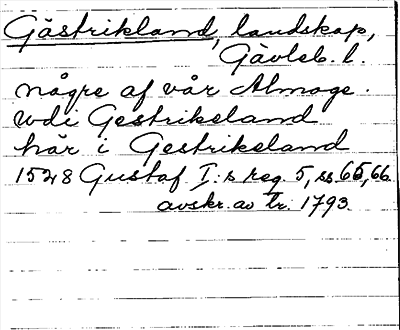 Gästrikland, landskap,
Gävleb. l.
någre af vår Almoge.
wdi Gestrikeland
här i Gestrikeland
1528 Gustaf I:s reg. 5, ss 65, 66.
avskr. av tr. 1793.